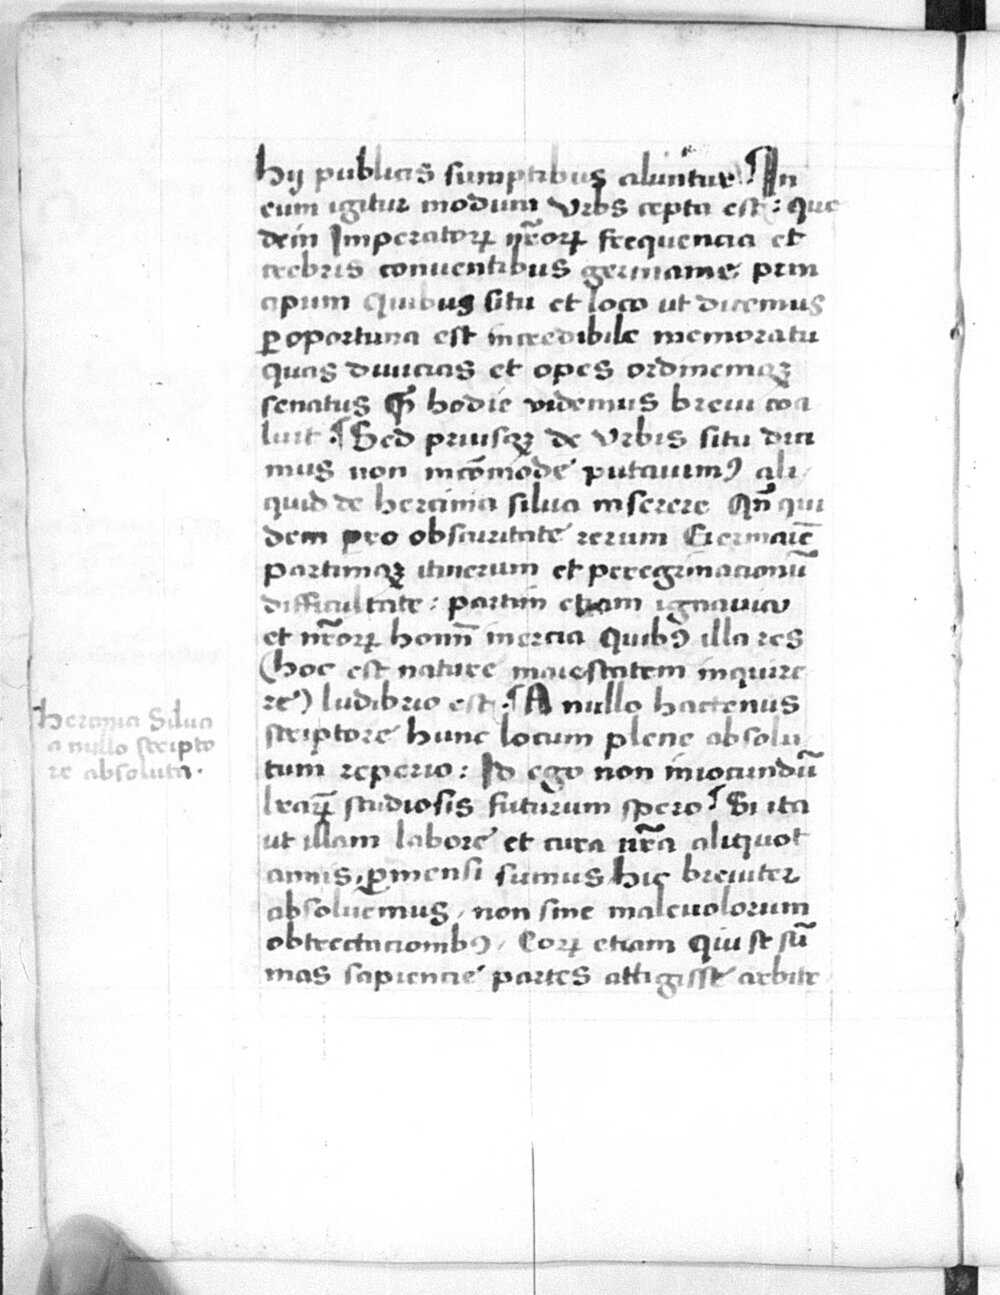 hij publicis sumptibus aluntur. ¶ In
eum igitur modum Vrbs cepta est: que
dein Imperatoꝝ nr̄oꝝ frequencia et
crebris conuentibus germanie prin
cipum Quibus situ et loco ut dicemus
ꝑoportuna est incredibile memoratu
quas diuicias et opes ordinemqꝫ
senatus Qm̄ hodie videmus breui coa
luit. ¶ Sed priusqꝫ de Vrbis situ dici
mus non incōmode putauimꝰ ali
quid de hercinia silua inserere Qn̄ qui
dem pro obscuritate rerum Germaīe
partimqꝫ itinerum et peregrinacionū
difficultate: partim etiam ignauia
et nr̄oꝝ homn̄ inercia Quibꝰ illa res
(hoc est nature maiestatem inquire
re) ludibrio est. ¶ A nullo hactenus
scriptore hunc locum plene absolu
tum reperio: Id ego non iniocundū
lr̄aꝝ studiosis futurum spero ¶ Si ita
ut illam labore et cura nr̄a aliquot
annis, ꝑmensi sumus hic breuiter
absoluemus, non sine maleuolorum
obtrectacionibꝰ, Eoꝝ etiam qui se sū
mas sapiencie partes attigisse arbitr
hercinia Silua
a nullo scripto
re absoluta.